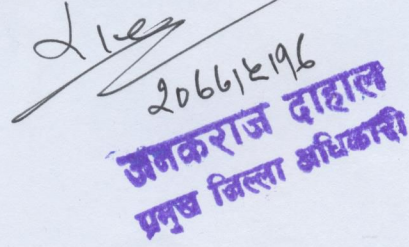 २०६६।५।१६
जनकराज दाहाल
प्रमुख जिल्ला अधिकारी